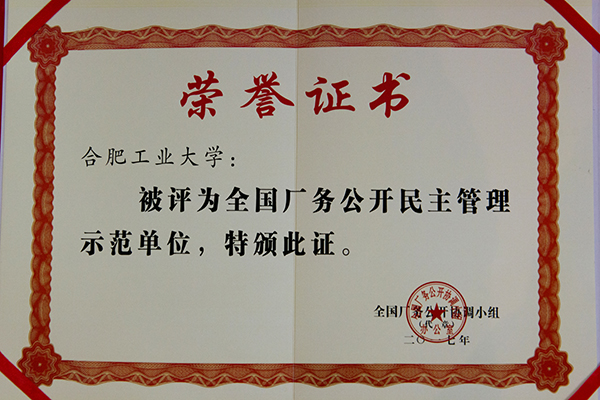 荣誉证书
合肥工业大学：
被评为全国厂务公开民主管理
示范单位，特颁此证。
全国厂务公开协调小组
（代章）
二〇一七年